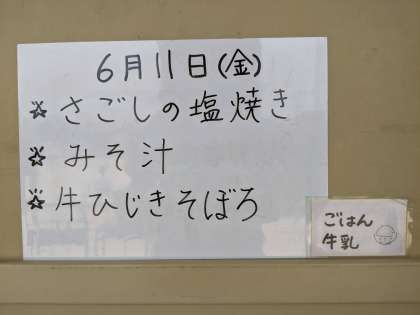 6月11日(金)
☆さごしの塩焼き
☆みそ汁
☆牛ひじきそぼろ
ごはん
牛乳